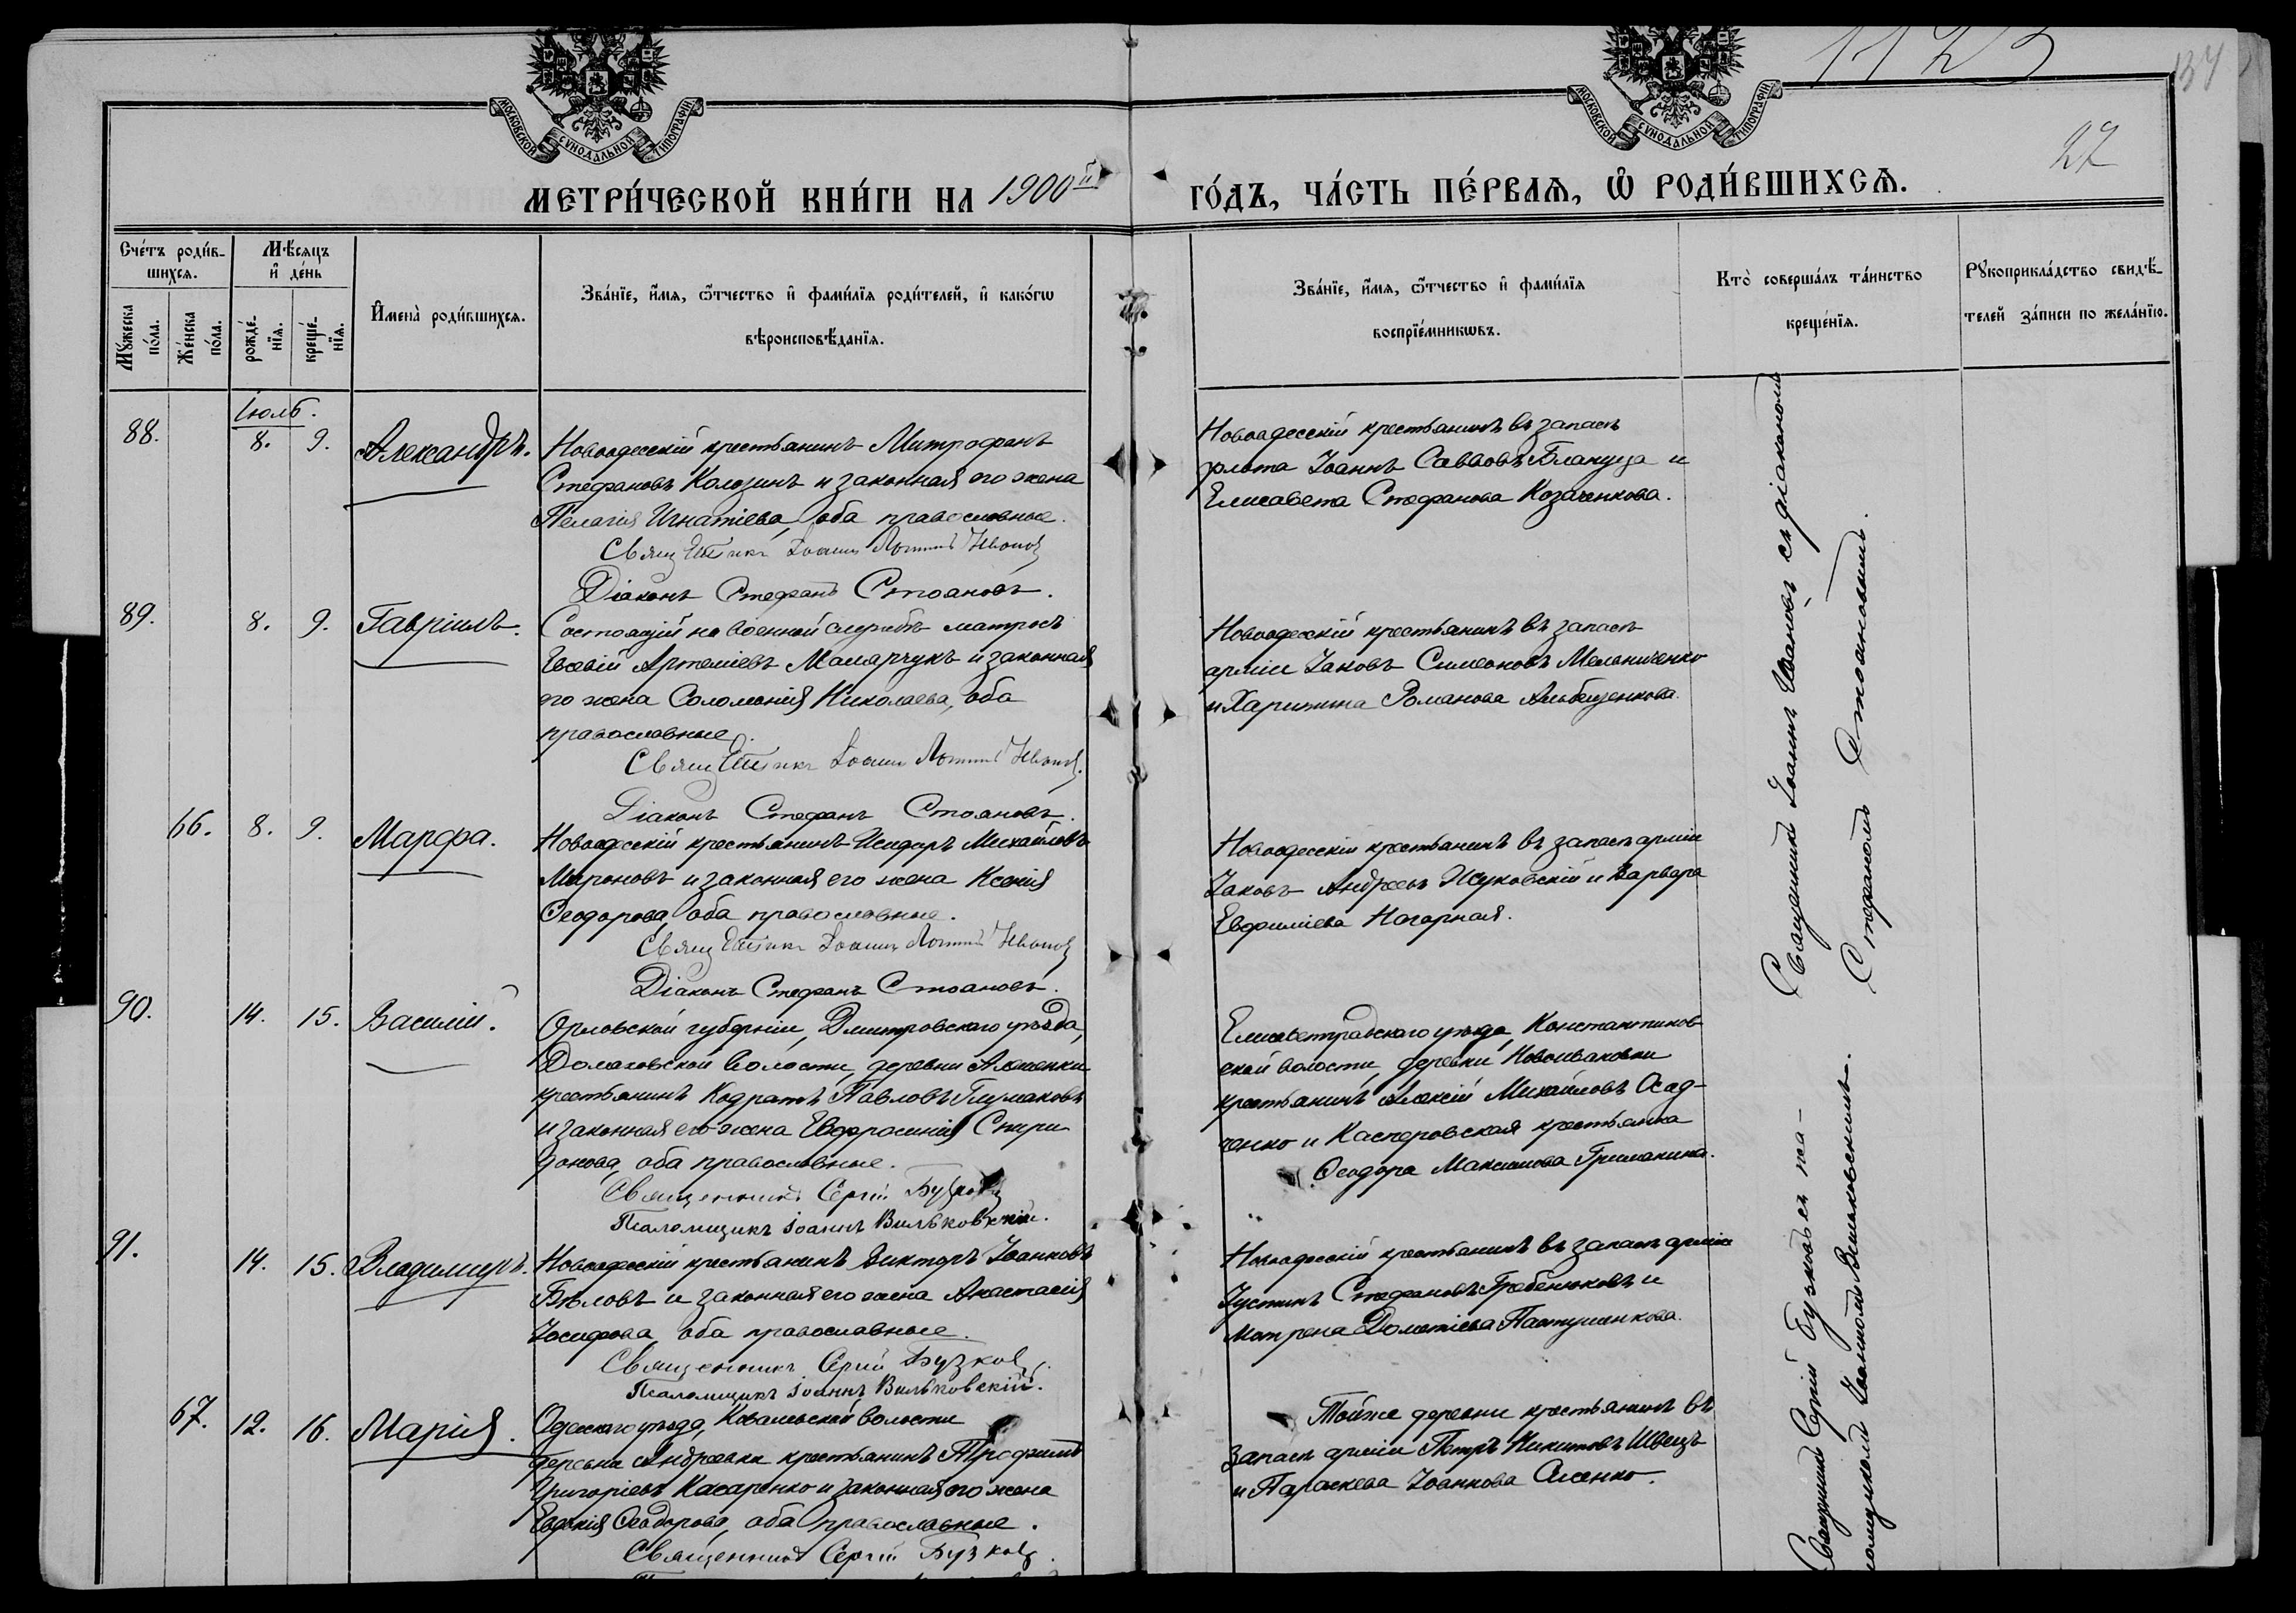 МОСКОВСКОЙ СУНОДАЛЬНОЙ ТИПОГРАФІИ
МОСКОВСКОЙ СУНОДАЛЬНОЙ ТИПОГРАФІИ
1123
134
27
МЕТРИ́ЧЕСКОЙ КНИ́ГИ НА 1900й
ГО́ДЪ, ЧА́СТЬ ПЕ́РВАѦ, Ѿ РОДИ́ВШИХСѦ.
Сче́тъ роди́в-
шихсѧ.
Мѣ́сѧцъ
и҆ де́нь
Мꙋ́жеска по́ла.
Же́нска по́ла.
рожде́-
нїѧ.
креще́-
нїѧ.
И҆мена̀ роди́вшихсѧ.
Зва́нїе, и҆́мѧ, ѻ҆́тчество и҆ фами́лїѧ роди́телей, и҆ како́гѡ
вѣроисповѣ́данїѧ.
Зва́нїе, и҆́мѧ, ѻ҆́тчество и҆ фами́лїѧ
воспрїе́мникѡвъ.
Кто̀ соверша́лъ та́инство
креще́нїѧ.
Рꙋкоприкла́дство свидѣ́-
телей за́писи по жела́нїю.
Іюль.
88.
8. 9.
Александръ.
Новоодесскій крестьянинъ Митрофанъ
Стефановъ Колозинъ и законная его жена
Пелагія Игнатіева, оба православные.
Священникъ Іоаннъ Иванов
Діаконъ Стефанъ Стоановъ.
Новоодесскій крестьянинъ въ запасѣ
флота Іоаннъ Саввовъ Блануца и
Елисавета Стефанова Козаченкова.
89.
8. 9.
Гавріилъ.
Состоящій на военной службѣ матросъ
Евсевій Артеміевъ Малярчукъ и законная
его жена Соломонія Николаева, оба
православные.
Священникъ Іоаннъ Иванов.
Діаконъ Стефанъ Стояновъ.
Новоодесскій крестьянинъ въ запасѣ
арміи Іаковъ Симеоновъ Мельниченко
и Харитина Романова
66.
8. 9.
Марфа.
Новоодесскій крестьянинъ Исидоръ Михайловъ
Мироновъ и законная его жена Ксенія
Ѳеодорова, оба православные.
Священникъ Іоаннъ Иванов
Діаконъ Стефанъ Стоановъ.
Новоодесскій крестьянинъ въ запасѣ арміи
Іаковъ Андреевъ Жуковскій и Варвара
Евфиміева Нагорная.
90.
14. 15.
Василій.
Орловской губерніи, Дмитровскаго уѣзда,
Домаховской волости, деревни Алешенки
крестьянинъ Кодратъ Павловъ
и законная его жена Евфросинія Спири
донова, оба православные.
Священникъ Сергій Бузков
Псаломщикъ Іоаннъ Вильковскій.
Елисаветградскаго уѣзда, Константинов
ской волости, деревни Новоивановки
крестьянинъ Алексій Михайловъ Осад-
ченко и Касперовская крестьянка
Ѳеодора Максимова Гримакина.
91.
14. 15.
Владимиръ.
Новоодесскій крестьянинъ Викторъ Іоанновъ
Бѣловъ и законная его жена Анастасія
Іосифова, оба православные.
Священникъ Сергій Бузков.
Псаломщикъ Іоаннъ Вильковскій.
Новоодесскій крестьянинъ въ запасѣ арміи
Іустинъ Стефановъ Гребенюковъ и
Матрона Дометіева Пастушенкова.
67.
12. 16.
Марія.
Одесскаго уѣзда, Ковалевской волости
деревни Андреевки крестьянинъ Трофимъ
Григоріевъ Касаренко и законная его жена
Евдокія Ѳеодорова, оба православные.
Священникъ Сергій Бузков.
Тойже деревни крестьянинъ въ
запасѣ арміи Петръ Никитовъ Швецъ
и Параскева Іоаннова
Священникъ Іоаннъ Ивановъ съ діакономъ
Стефаномъ Стоановымъ.
Священникъ Сергій Бузковъ съ пса-
ломщикомъ Іоанномъ Вильковскимъ.